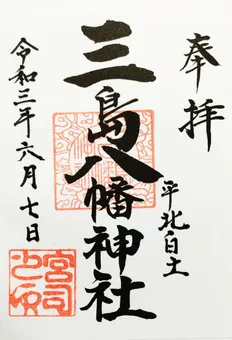 奉拝
平北白土
三島八幡神社
令和三年六月七日
宮司
之印